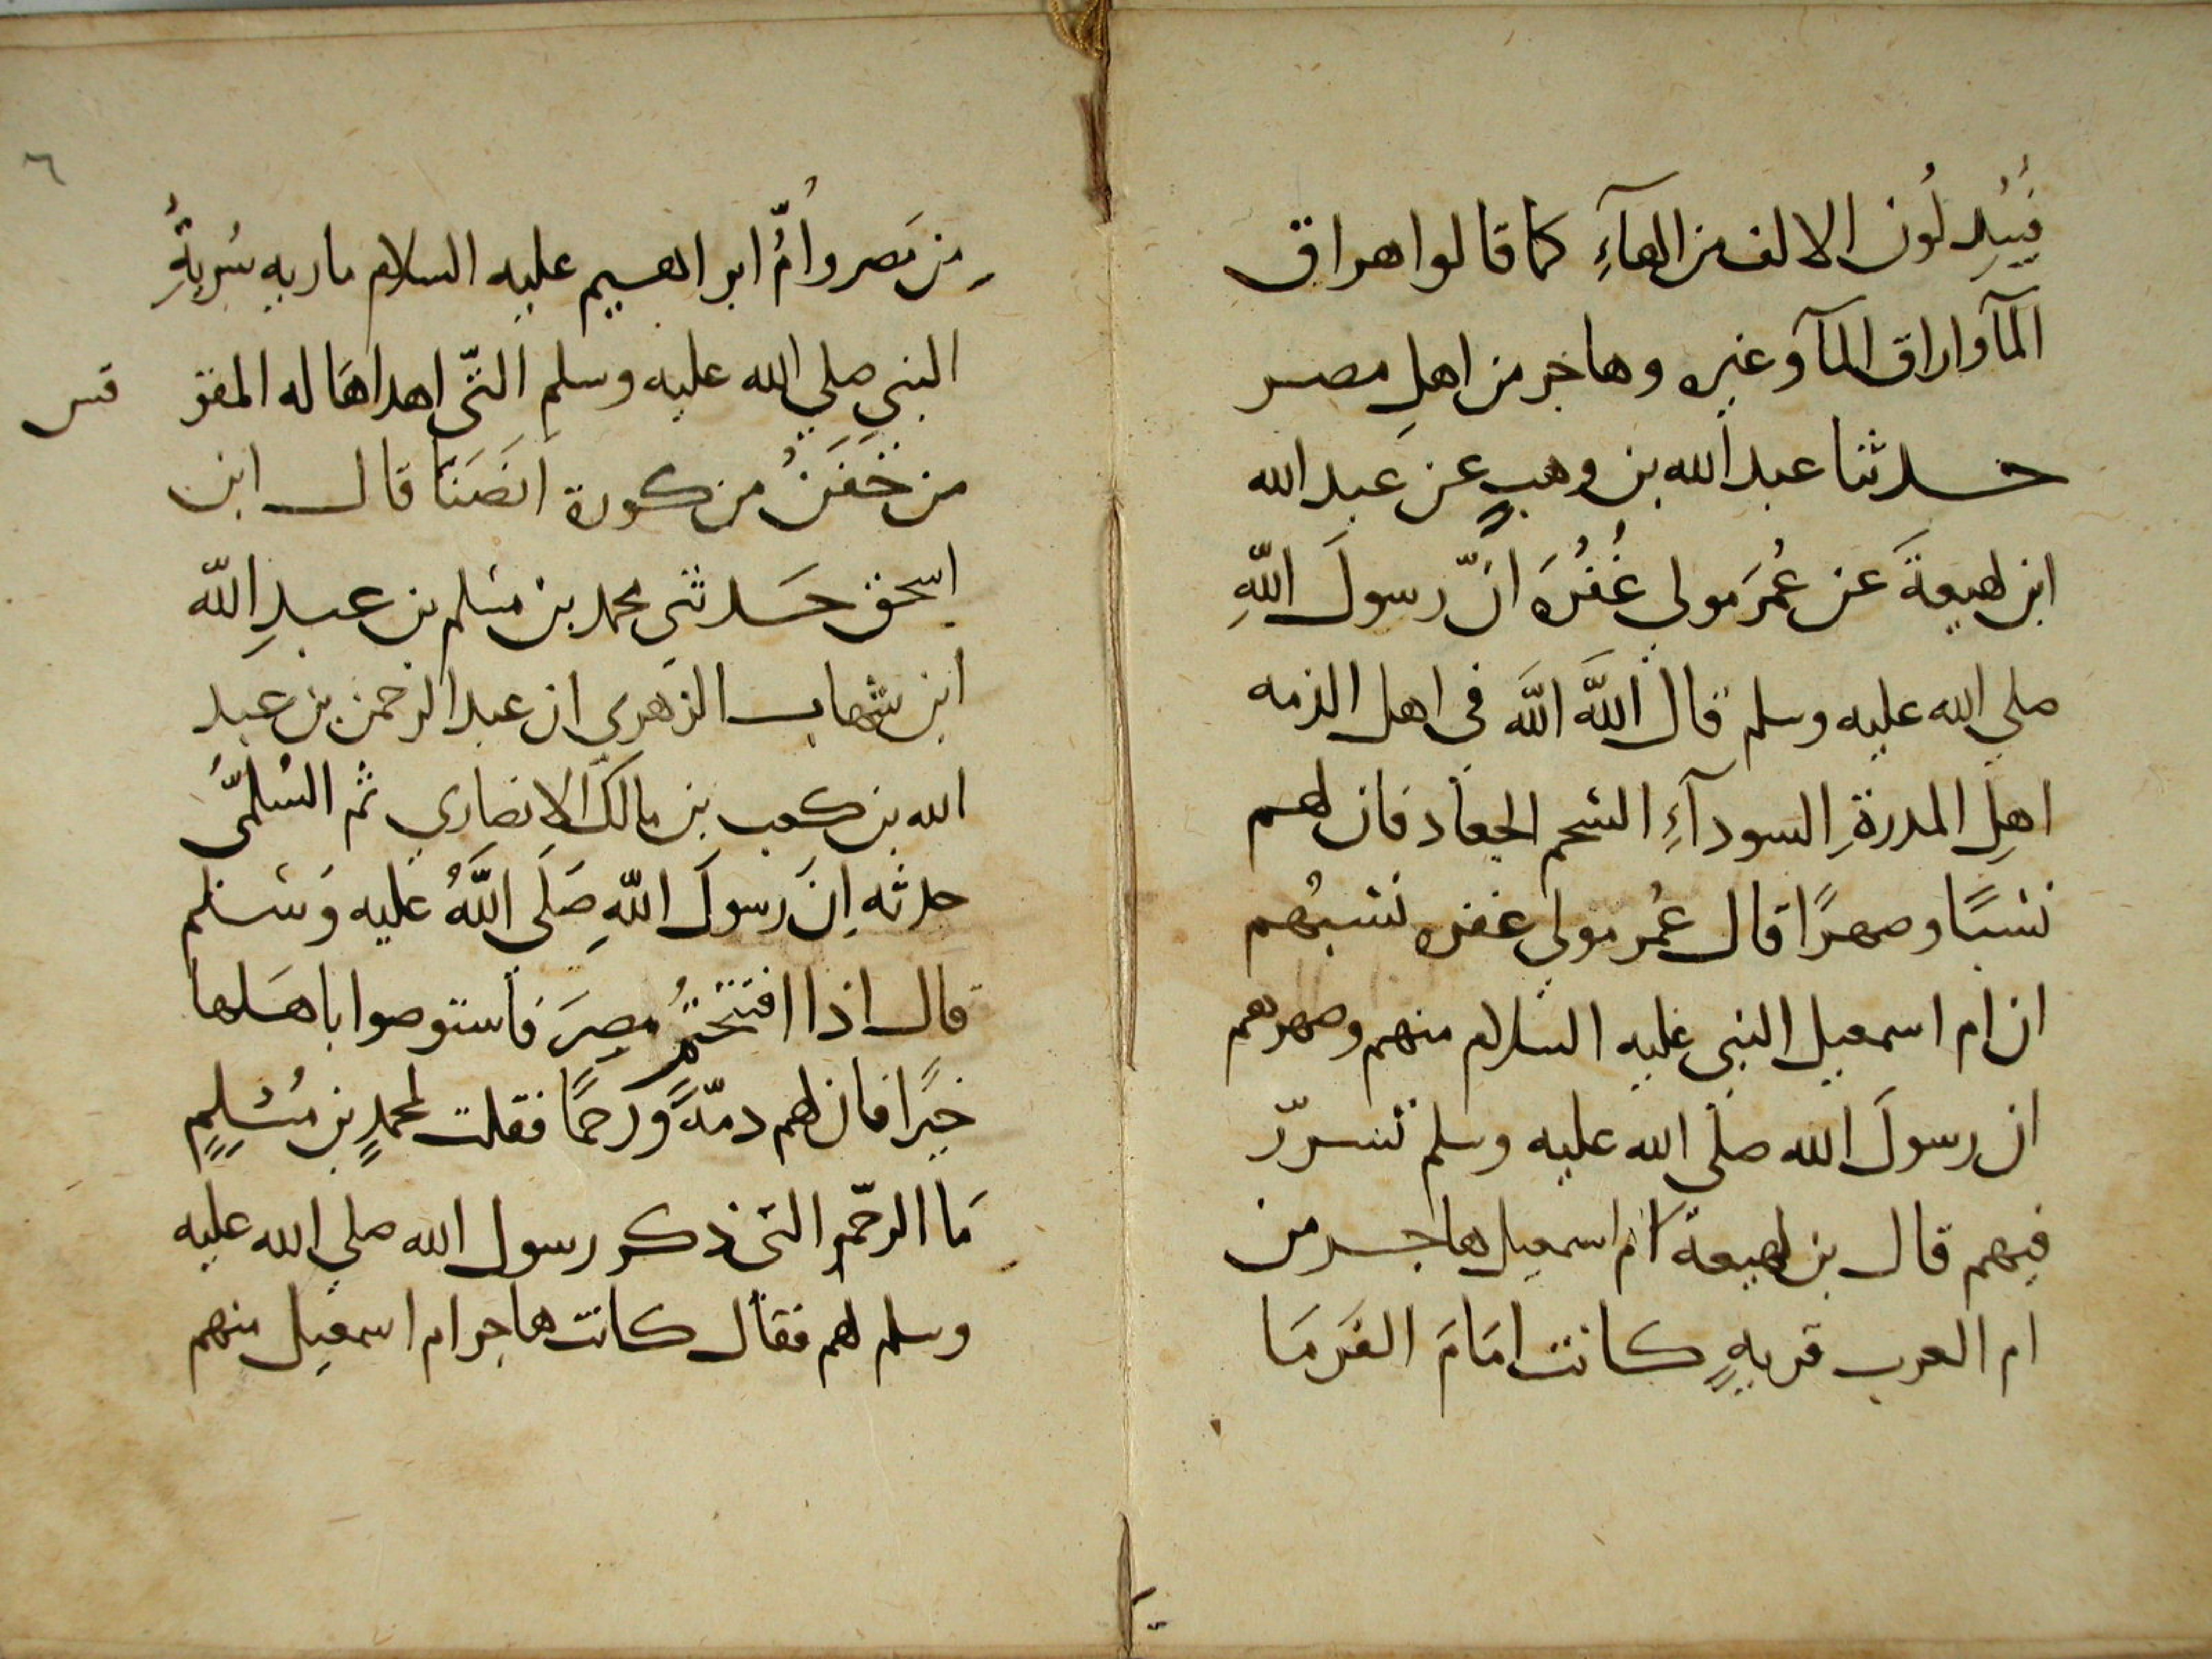 فَيُبدِلُون الالف من الهآءِ كما قالوا هراق
المآ واراق المآ وغيره وهاجر من اهلِ مصر
حدثنا عبد الله بن وهبٍ عن عبد الله
ابن لهيعةَ عن عُمَر مولي غُفْرَه انّ رسولَ اللّهِ
صلي الله عليه وسلم قال اللّهَ اللّهَ في اهل الذمه
اهلِ المدرةِ السودآءِ السحم الجعاد فان لهم
نسبًا وصهرًا قال عُمر مولي غفره نسبُهم
ان ام اسمعيل النبي عليه السلام منهم وصهرهم
ان رسولَ الله صلي الله عليه وسلم تسرّر
فيهم قال بن لهيعة ام اسمعيل هاجر من
ام العرب قريهٍ كانت امَامَ الفَرَمَا
٦
مِن مَصر وامُّ ابراهيم عليه السلام ماريه سُريةُ
النبي صلي الله عليه وسلم التّي اهداهَا له المقو قس
من حَفَنْ من كورة انصَنَا قال ابن
اسحق حَدثني محمد بن مسلم بن عبدِ اللّه
ابن شهاب الزهري ان عبد الرحمن بن عبد
الله بن كعب بن مالك الانصاري ثم السُلَمّي
حدثه اِنَ رسولَ اللّهِ صَلَي اللّهُ عليه وَسَلم
قال اذا افتتحتُم مصرَ فاستوصوا باهلها
خيرًا فان لهم دمّهً ورحمًا فقلت لمحمدٍ بن مُسْلِمٍ
مَا الرحّم التي ذكر رسول الله صلي الله عليه
وسلم لهم فقال كانت هاجر ام اسمعيل منهم